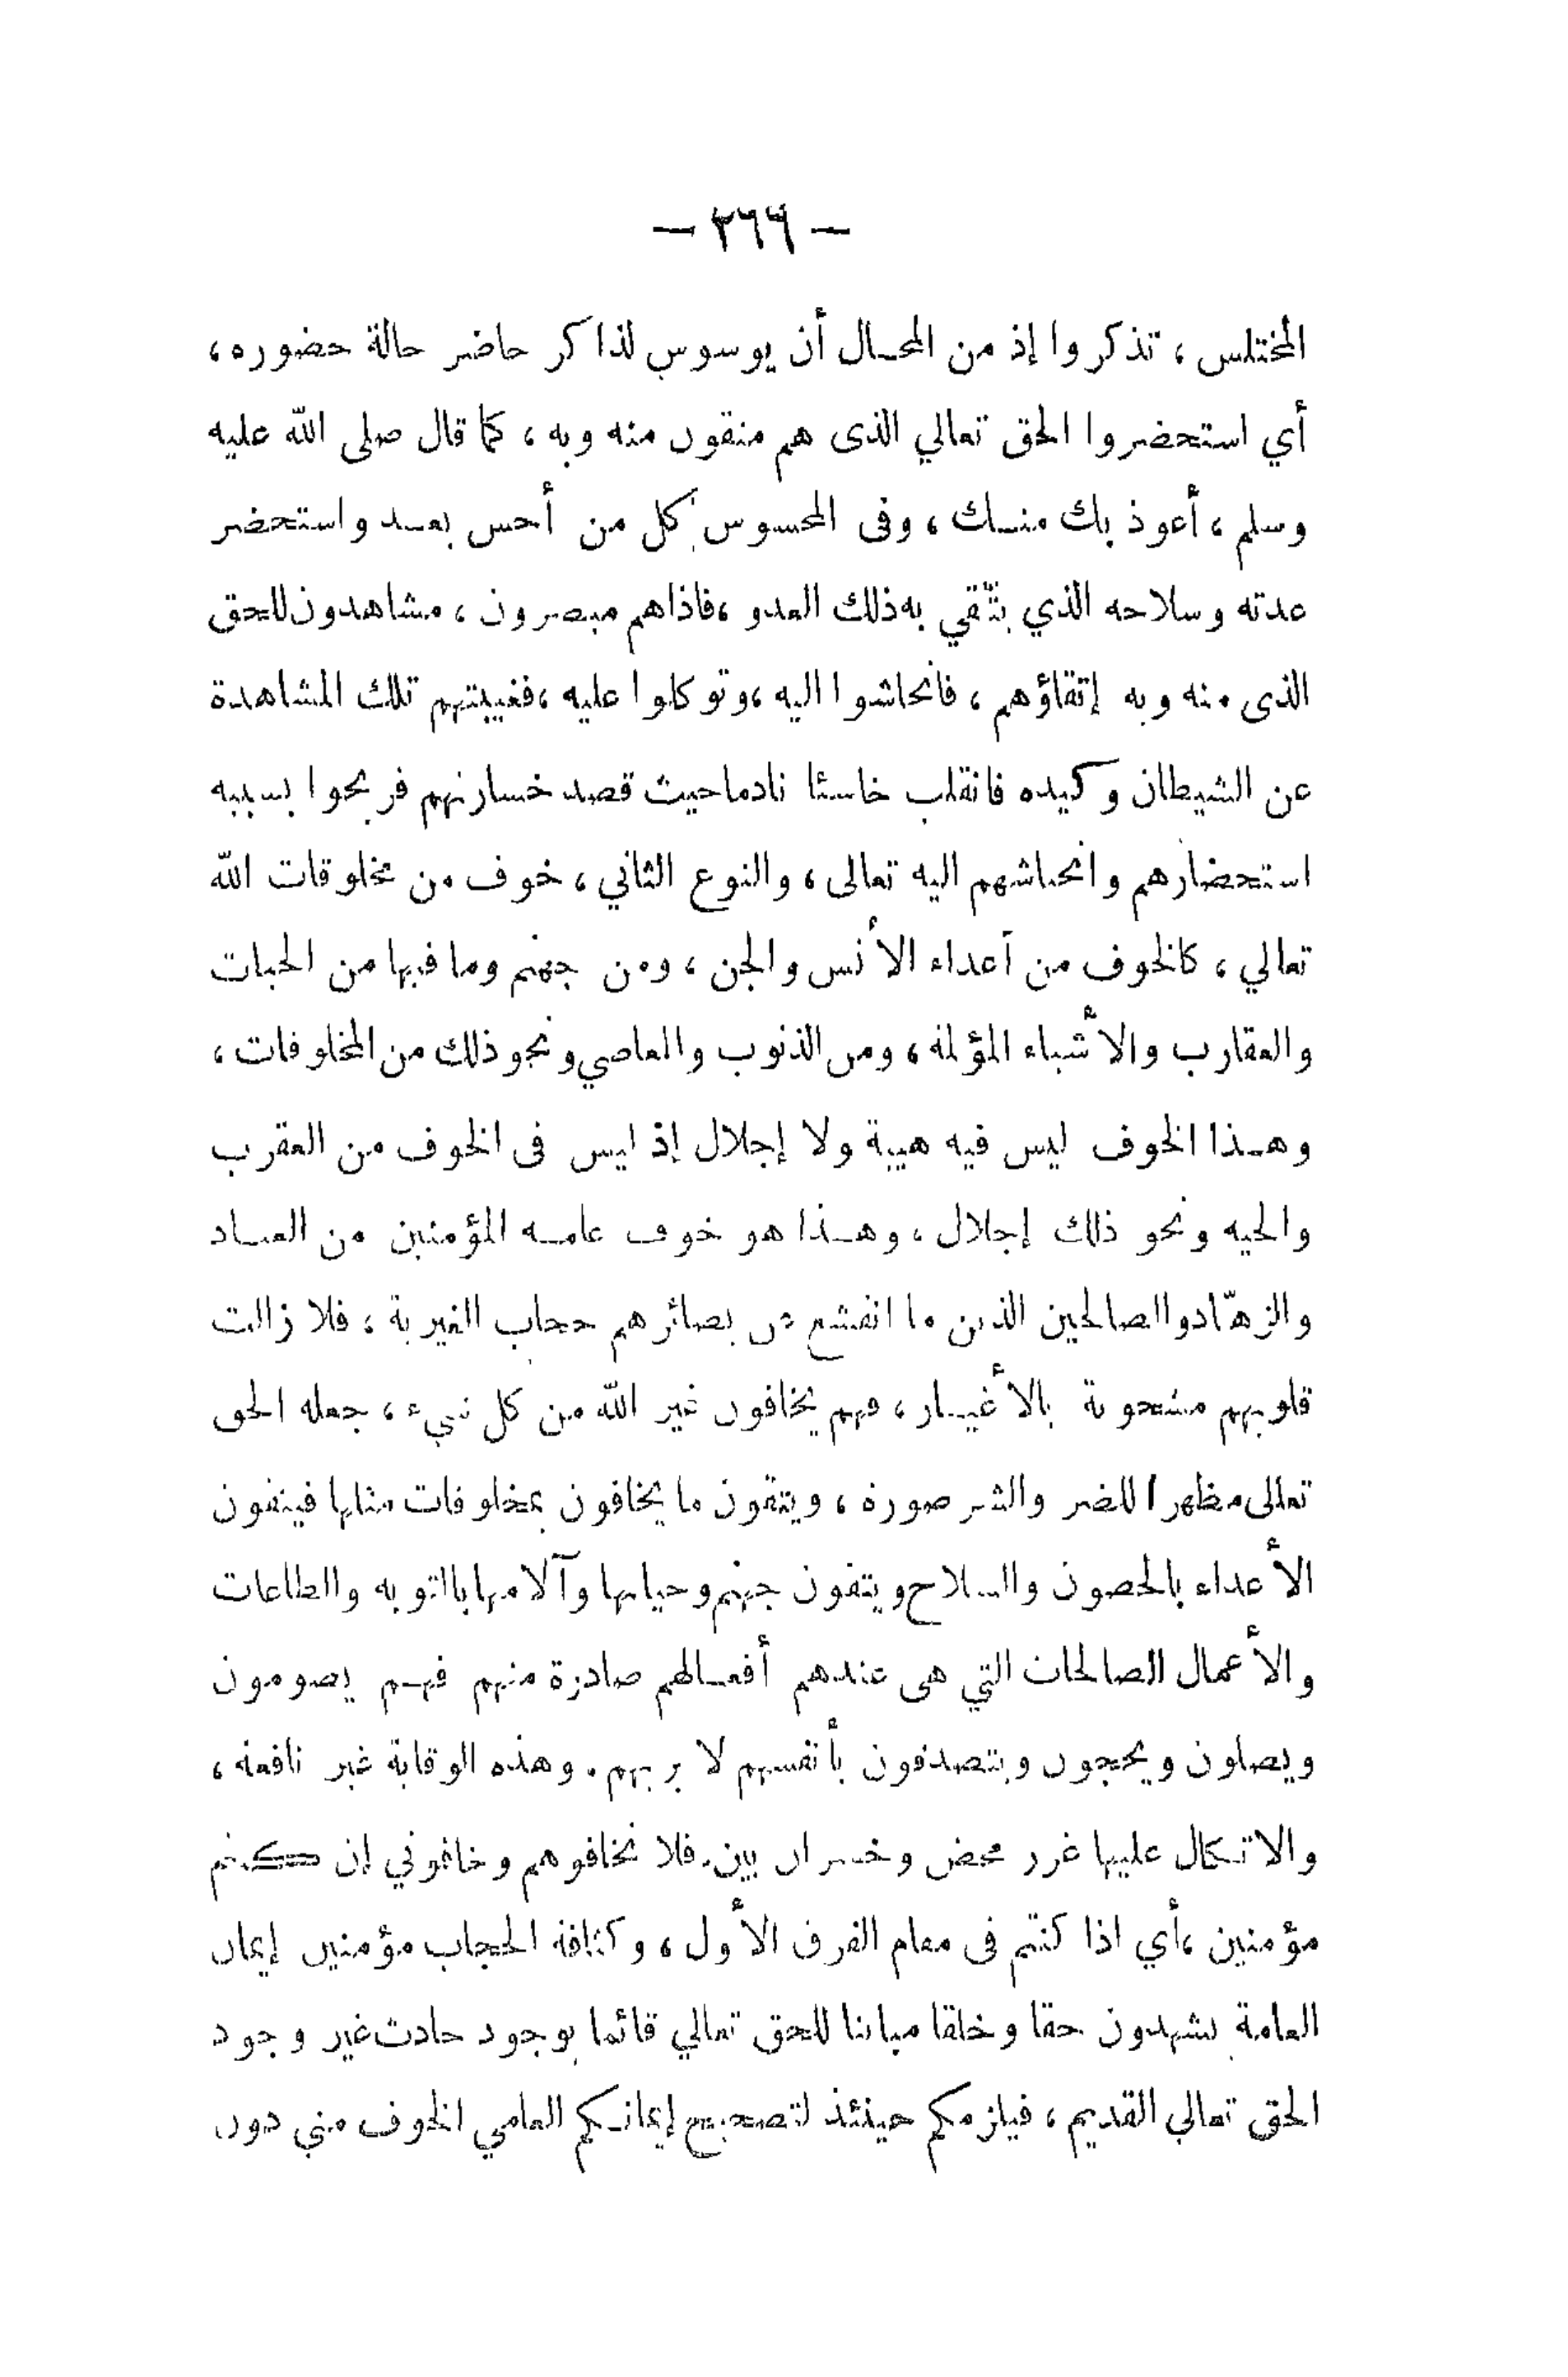 — ٢٦٦ —
المختلس ، تذكروا إذ من المحال أن يوسوس لذاكر حاضر حالة حضوره ،
أي استحضروا الحق تعالي الذى هم متقون منه وبه ، كما قال صلى الله عليه
وسلم ، أعوذ بك منك ، وفى المحسوس كل من أحس بعدو استحضر
عدته وسلاحه الذي يتّقي به ذلك العدو ، فاذاهم مبصرون ، مشاهدون للحق
الذى منه وبه إتقاؤهم ، فانحاشوا اليه ، وتوكلوا عليه ، فغيبتهم تلك المشاهدة
عن الشيطان وكيده فانقلب خاسئا نادما حيث قصد خسارتهم فربحوا بسببه
استحضارهم وانحياشهم اليه تعالى ، والنوع الثاني ، خوف من مخلوقات الله
تعالي ، كالخوف من أعداء الأنس والجن ، ومن جهنم وما فيها من الحيات
والعقارب والأشياء المؤلمة ، ومن الذنوب والمعاصي ونحو ذلك من المخلوقات ،
وهذا الخوف ليس فيه هيبة ولا إجلال إذ ليس فى الخوف من العقرب
والحيه ونحو ذلك إجلال ، وهذا هو خوف عامة المؤمنين من العباد
والزهّاد والصالحين الذين ما انقشع عن بصائرهم حجاب الغيرية ، فلا زالت
قلوبهم مشحونة بالأغيار ، فهم يخافون غير الله من كل شيء ، جعله الحق
تعالى مظهرا للضر والشر صورة ، ويتقون ما يخافون بمخلوقات مثلها فيتقون
الأعداء بالحصون والسلاح ويتقون جهنم وحياتها وآلامها بالتوبه والطاعات
والأعمال الصالحات التي هى عندهم أفعالهم صادرة منهم فهم يصومون
ويصلون ويحجون ويتصدقون بأنفسهم لا بربهم . وهذه الوقاية غير نافعة ،
والاتكال عليها غرر محض وخسران بين . فلا تخافوهم وخافوني إن كنتم
مؤمنين ، أي اذا كنتم فى مقام الفرق الأول ، وكثافة الحجاب مؤمنين إيمان
العامة تشهدون حقا وخلقا مباينا للحق تعالي قائما بوجود حادث غير وجود
الحق تعالي القديم ، فيلزمكم حينئذ لتصحيح إيمانكم العامي الخوف مني دون